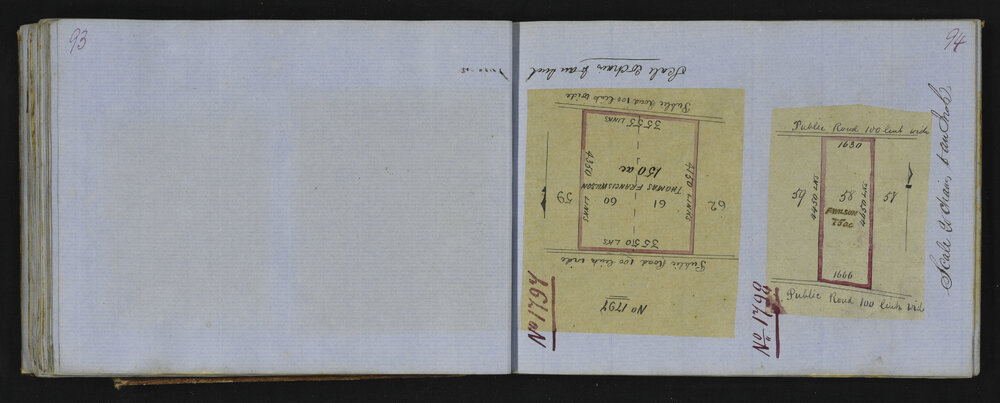 93
94
Scale 20 chains to an inch
Public Road 100 links wide
3555 LINKS
4350 LINKS
4150 LINKS
150 ac
THOMAS FRANCIS WILSON
59
60
61
62
3550 LKS
Public Road 100 links wide
No 1797
No 1797
Public Road 100 link wide
1630
59
58
57
4450 LKS
4450 LKS
F WILSON
75 ac
1666
Public Road 100 link wide
No 1798
Scale 20 chains to an Inch